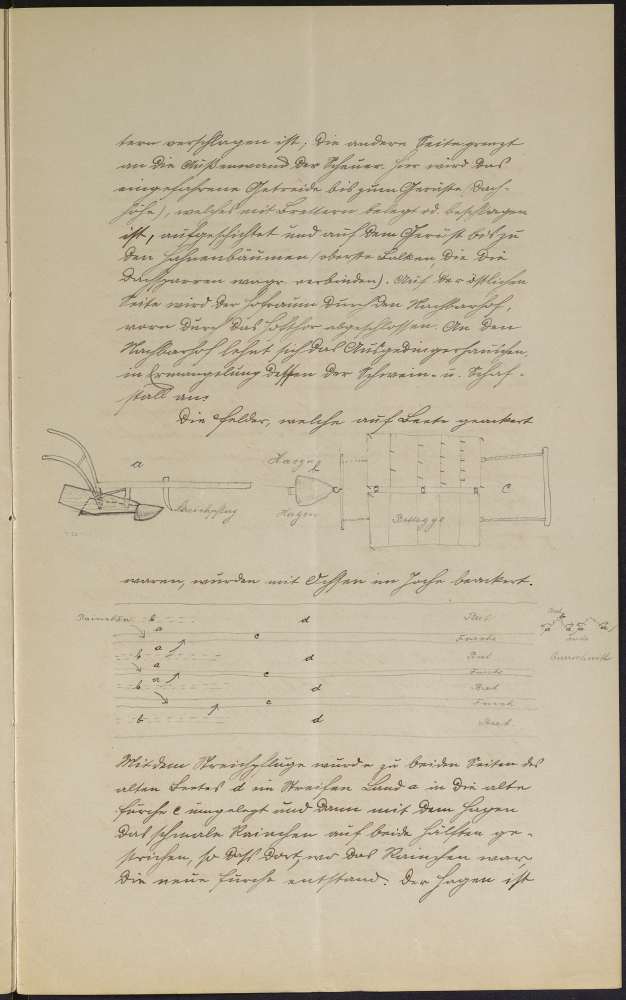 tern verschlagen ist; die andere Seite grenzt
an die Außenwand der Scheuer. Hier wird das
eingefahrene Getreide bis zum Gerüste (Dach-
höhe), welches mit Brettern belegt od. beschlagen
ist, aufgeschichtet und auf dem Gerüst bis zu
den Hahnenbäumen (oberste Balken, die die
Dachsparren wagr. verbinden). Auf der östlichen
Seite wird der Hofraum durch den Nachbarhof,
vorn durch das Hofthor abgeschlossen. An den
Nachbarhof lehnt sich das Ausgedingerhäuschen,
in Ermangelung dessen der Schwein- u. Schaf-
stall an.
Die Felder, welche auf Beete geackert
a
Streichpflug
Haagen
Bettegge
c
waren, wurden mit Ochsen im Joche beackert.
Rainchen b d Beet
a c Furche
b a d Beet
a c Furche
b a d Beet
c Furche
b d Beet
Querschnitt
Mit dem Streichpfluge wurde zu beiden Seiten des
alten Beetes d ein Streifen Land a in die alte
Furche c umgelegt und dann mit dem Hagen
das schmale Rainchen auf beide Hälften ge-
strichen, so dass dort, wo das Rainchen war,
die neue Furche entstand. Der Hagen ist